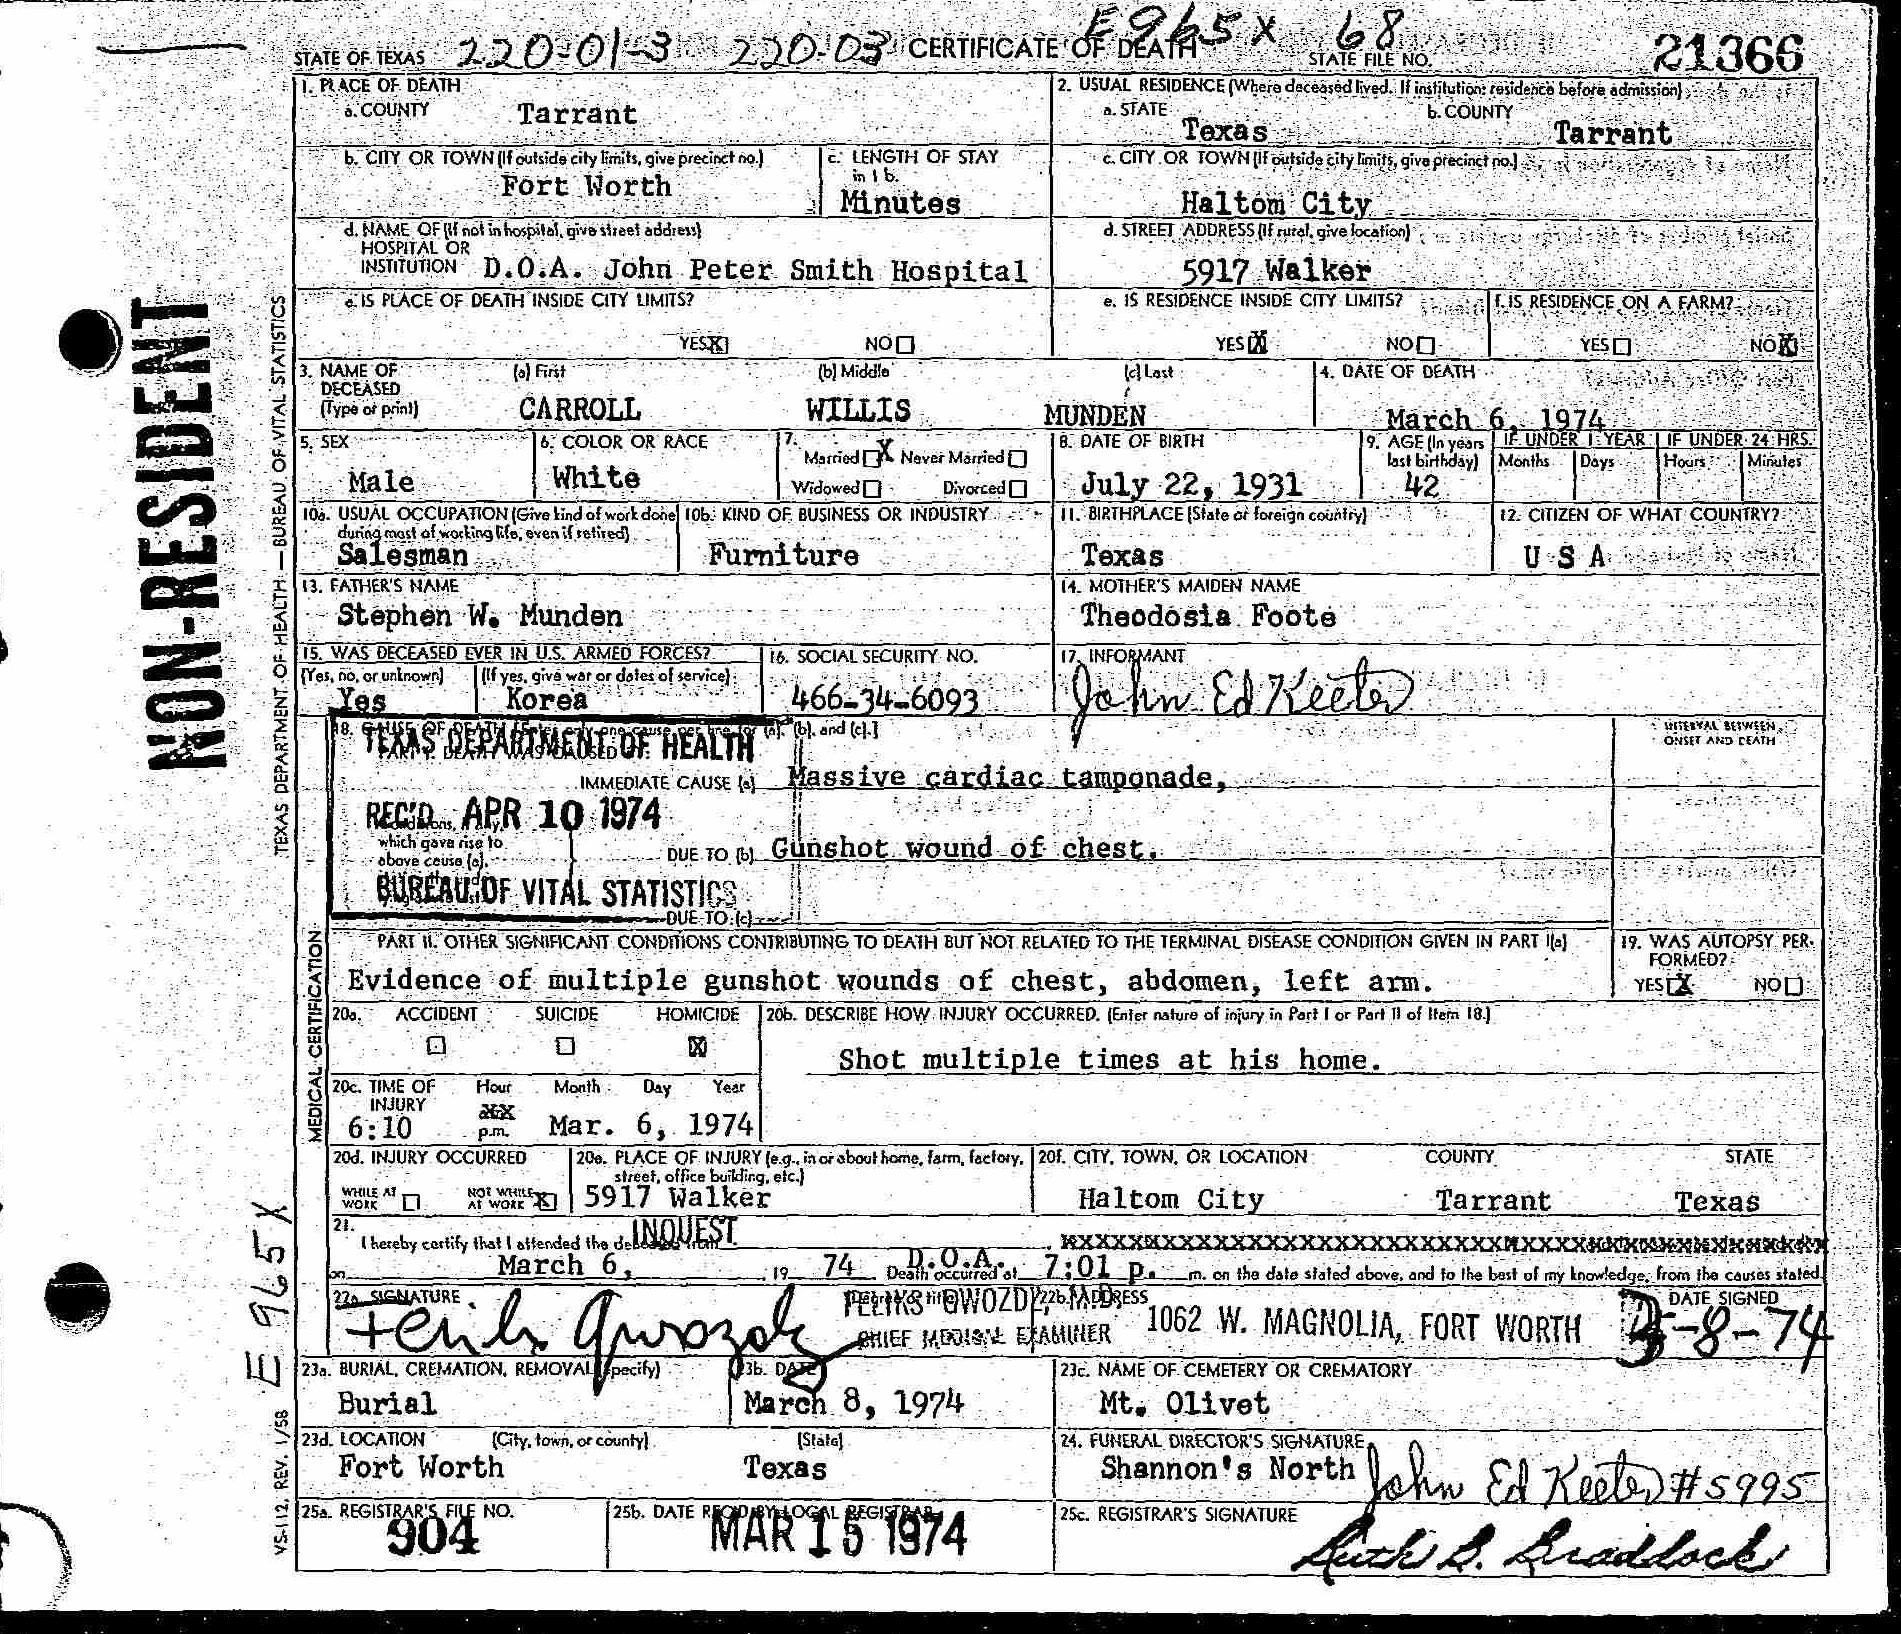 E965X 68
STATE OF TEXAS 220-01-3 220-03 CERTIFICATE OF DEATH STATE FILE NO. 21366
1. PLACE OF DEATH
a. COUNTY Tarrant
2. USUAL RESIDENCE (Where deceased lived. If institution: residence before admission)
a. STATE Texas b. COUNTY Tarrant
b. CITY OR TOWN (If outside city limits, give precinct no.) Fort Worth
c. LENGTH OF STAY in 1 b. Minutes
c. CITY OR TOWN (If outside city limits, give precinct no.) Haltom City
d. NAME OF (If not in hospital, give street address)
HOSPITAL OR
INSTITUTION D.O.A. John Peter Smith Hospital
d. STREET ADDRESS (If rural, give location)
5917 Walker
e. IS PLACE OF DEATH INSIDE CITY LIMITS?
YES X NO
e. IS RESIDENCE INSIDE CITY LIMITS?
YES X NO
f. IS RESIDENCE ON A FARM?
YES NO X
3. NAME OF DECEASED (Type or print)
(a) First (b) Middle (c) Last
CARROLL WILLIS MUNDEN
4. DATE OF DEATH
March 6, 1974
5. SEX
Male
6. COLOR OR RACE
White
7. Married X Never Married
Widowed Divorced
8. DATE OF BIRTH
July 22, 1931
9. AGE (In years last birthday)
42
IF UNDER 1 YEAR
Months Days
IF UNDER 24 HRS.
Hours Minutes
10a. USUAL OCCUPATION (Give kind of work done during most of working life, even if retired)
Salesman
10b. KIND OF BUSINESS OR INDUSTRY
Furniture
11. BIRTHPLACE (State or foreign country)
Texas
12. CITIZEN OF WHAT COUNTRY?
U S A
13. FATHER'S NAME
Stephen W. Munden
14. MOTHER'S MAIDEN NAME
Theodosia Foote
15. WAS DECEASED EVER IN U.S. ARMED FORCES?
(Yes, no, or unknown) (If yes, give war or dates of service)
Yes Korea
16. SOCIAL SECURITY NO.
466-34-6093
17. INFORMANT
John Ed Keeter
18. CAUSE OF DEATH
(b), and (c).]
INTERVAL BETWEEN
ONSET AND DEATH
TEXAS DEPARTMENT OF HEALTH
IMMEDIATE CAUSE (a) Massive cardiac tamponade,
REC'D APR 10 1974
which gave rise to
above cause (a),
DUE TO (b) Gunshot wound of chest.
BUREAU OF VITAL STATISTICS
DUE TO (c)
PART II. OTHER SIGNIFICANT CONDITIONS CONTRIBUTING TO DEATH BUT NOT RELATED TO THE TERMINAL DISEASE CONDITION GIVEN IN PART I(a)
Evidence of multiple gunshot wounds of chest, abdomen, left arm.
19. WAS AUTOPSY PERFORMED?
YES X NO
20a. ACCIDENT SUICIDE HOMICIDE X
20b. DESCRIBE HOW INJURY OCCURRED. (Enter nature of injury in Part I or Part II of Item 18.)
Shot multiple times at his home.
20c. TIME OF INJURY Hour Month Day Year
6:10 p.m. Mar. 6, 1974
20d. INJURY OCCURRED
WHILE AT WORK NOT WHILE AT WORK X
20e. PLACE OF INJURY (e.g., in or about home, farm, factory, street, office building, etc.)
5917 Walker
20f. CITY, TOWN, OR LOCATION COUNTY STATE
Haltom City Tarrant Texas
21. INQUEST
I hereby certify that I attended the deceased from
on March 6, 19 74 D.O.A. Death occurred at 7:01 p. m. on the date stated above, and to the best of my knowledge, from the causes stated
22a. SIGNATURE
Feliks Gwozdz
FELIKS GWOZDZ, M.D.
CHIEF MEDICAL EXAMINER
22b. ADDRESS
1062 W. MAGNOLIA, FORT WORTH
DATE SIGNED
3-8-74
23a. BURIAL, CREMATION, REMOVAL (Specify)
Burial
23b. DATE
March 8, 1974
23c. NAME OF CEMETERY OR CREMATORY
Mt. Olivet
23d. LOCATION (City, town, or county) (State)
Fort Worth Texas
24. FUNERAL DIRECTOR'S SIGNATURE
Shannon's North John Ed Keeter #5995
25a. REGISTRAR'S FILE NO.
904
25b. DATE REC'D BY LOCAL REGISTRAR
MAR 15 1974
25c. REGISTRAR'S SIGNATURE
Ruth B. Braddock
NON-RESIDENT
TEXAS DEPARTMENT OF HEALTH — BUREAU OF VITAL STATISTICS
MEDICAL CERTIFICATION
E 965X
VS-112, REV. 1/58